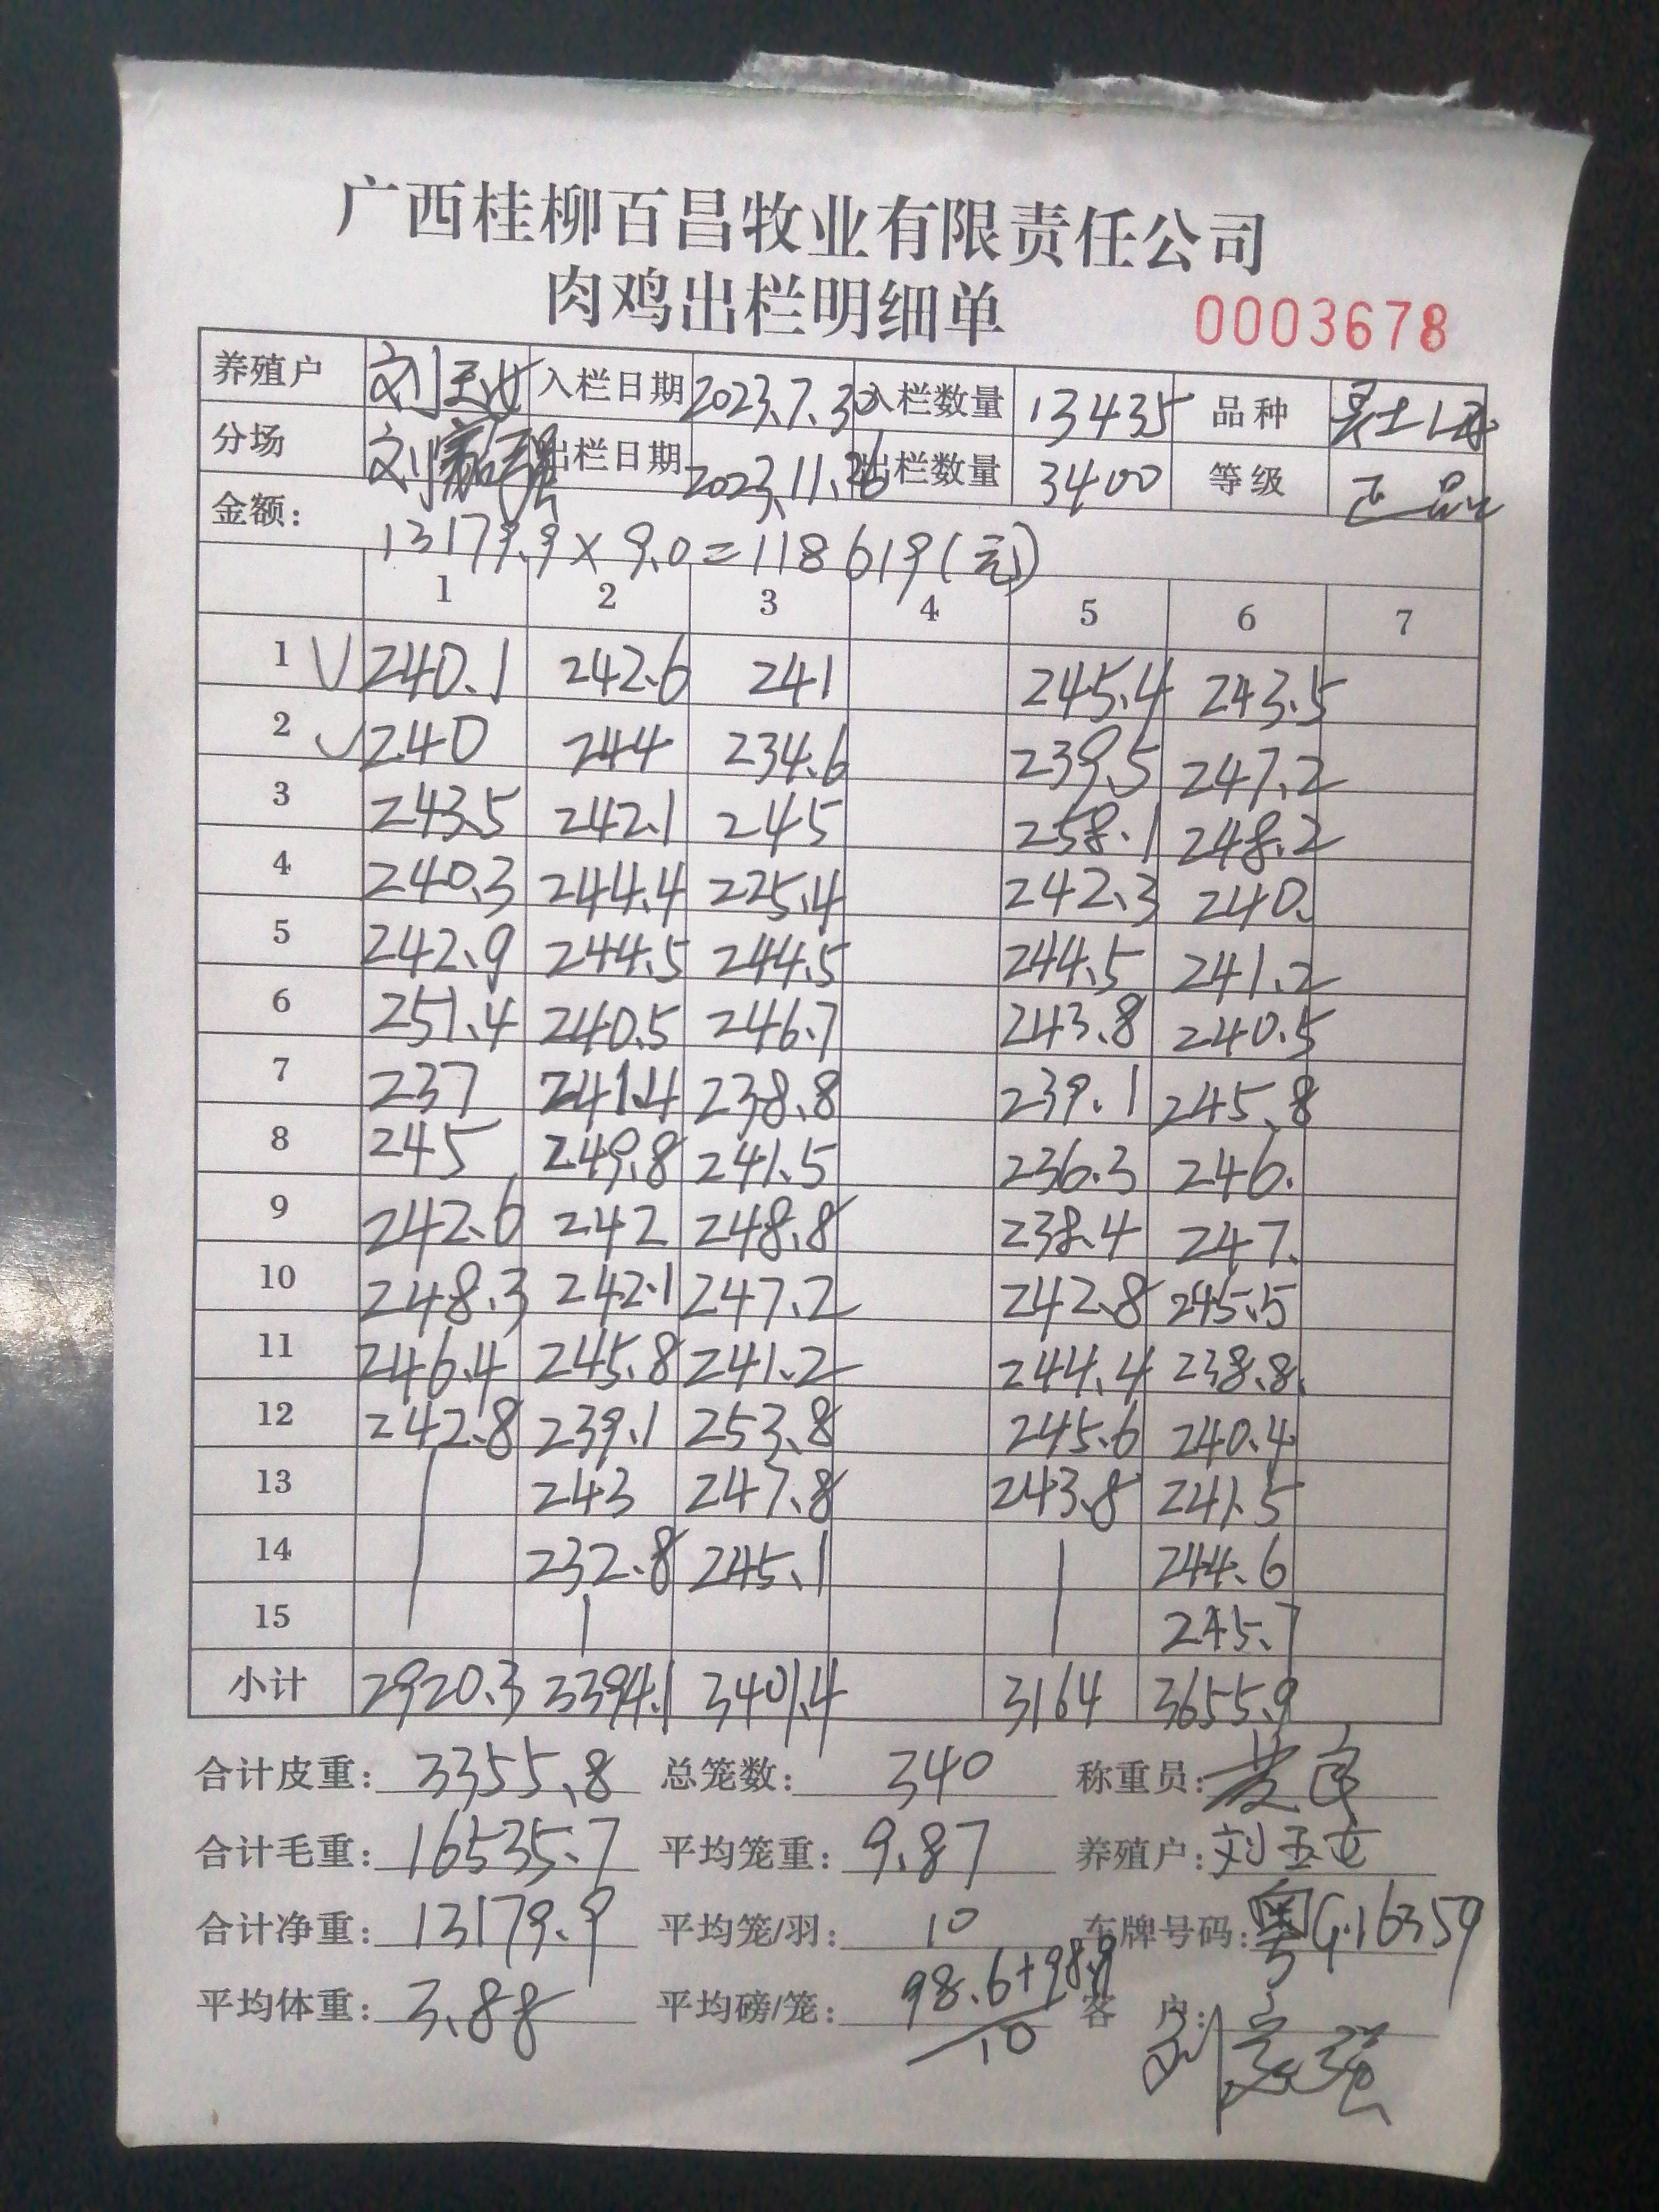 广西桂柳百昌牧业有限责任公司
肉鸡出栏明细单 0003678
养殖户 刘玉 入栏日期 2023.7.30 入栏数量 13435 品种
分场 刘家强 出栏日期 2023.11.26 出栏数量 3400 等级 正品
金额: 13179.9×9.0=118619(元)
1 2 3 4 5 6 7
1 240.1 242.6 241 245.4 243.5
2 240 244 234.6 239.5 247.2
3 243.5 242.1 245 258.1 248.2
4 240.3 244.4 225.4 242.3 240.
5 242.9 244.5 244.5 244.5 241.2
6 251.4 240.5 246.7 243.8 240.5
7 237 241.4 238.8 239.1 245.8
8 245 249.8 241.5 236.3 246.
9 242.6 242 248.8 238.4 247.
10 248.3 242.1 247.2 242.8 245.5
11 246.4 245.8 241.2 244.4 238.8.
12 242.8 239.1 253.8 245.6 240.4
13 243 247.8 243.8 241.5
14 232.8 245.1 244.6
15 245.7
小计 2920.3 3394.1 3401.4 3164 3655.9
合计皮重: 3355.8 总笼数: 340 称重员:
合计毛重: 16535.7 平均笼重: 9.87 养殖户: 刘玉
合计净重: 13179.9 平均笼/羽: 10 车牌号码: 粤G.16359
平均体重: 3.88 平均磅/笼: 98.6+98.9 客 户: 刘家强
10